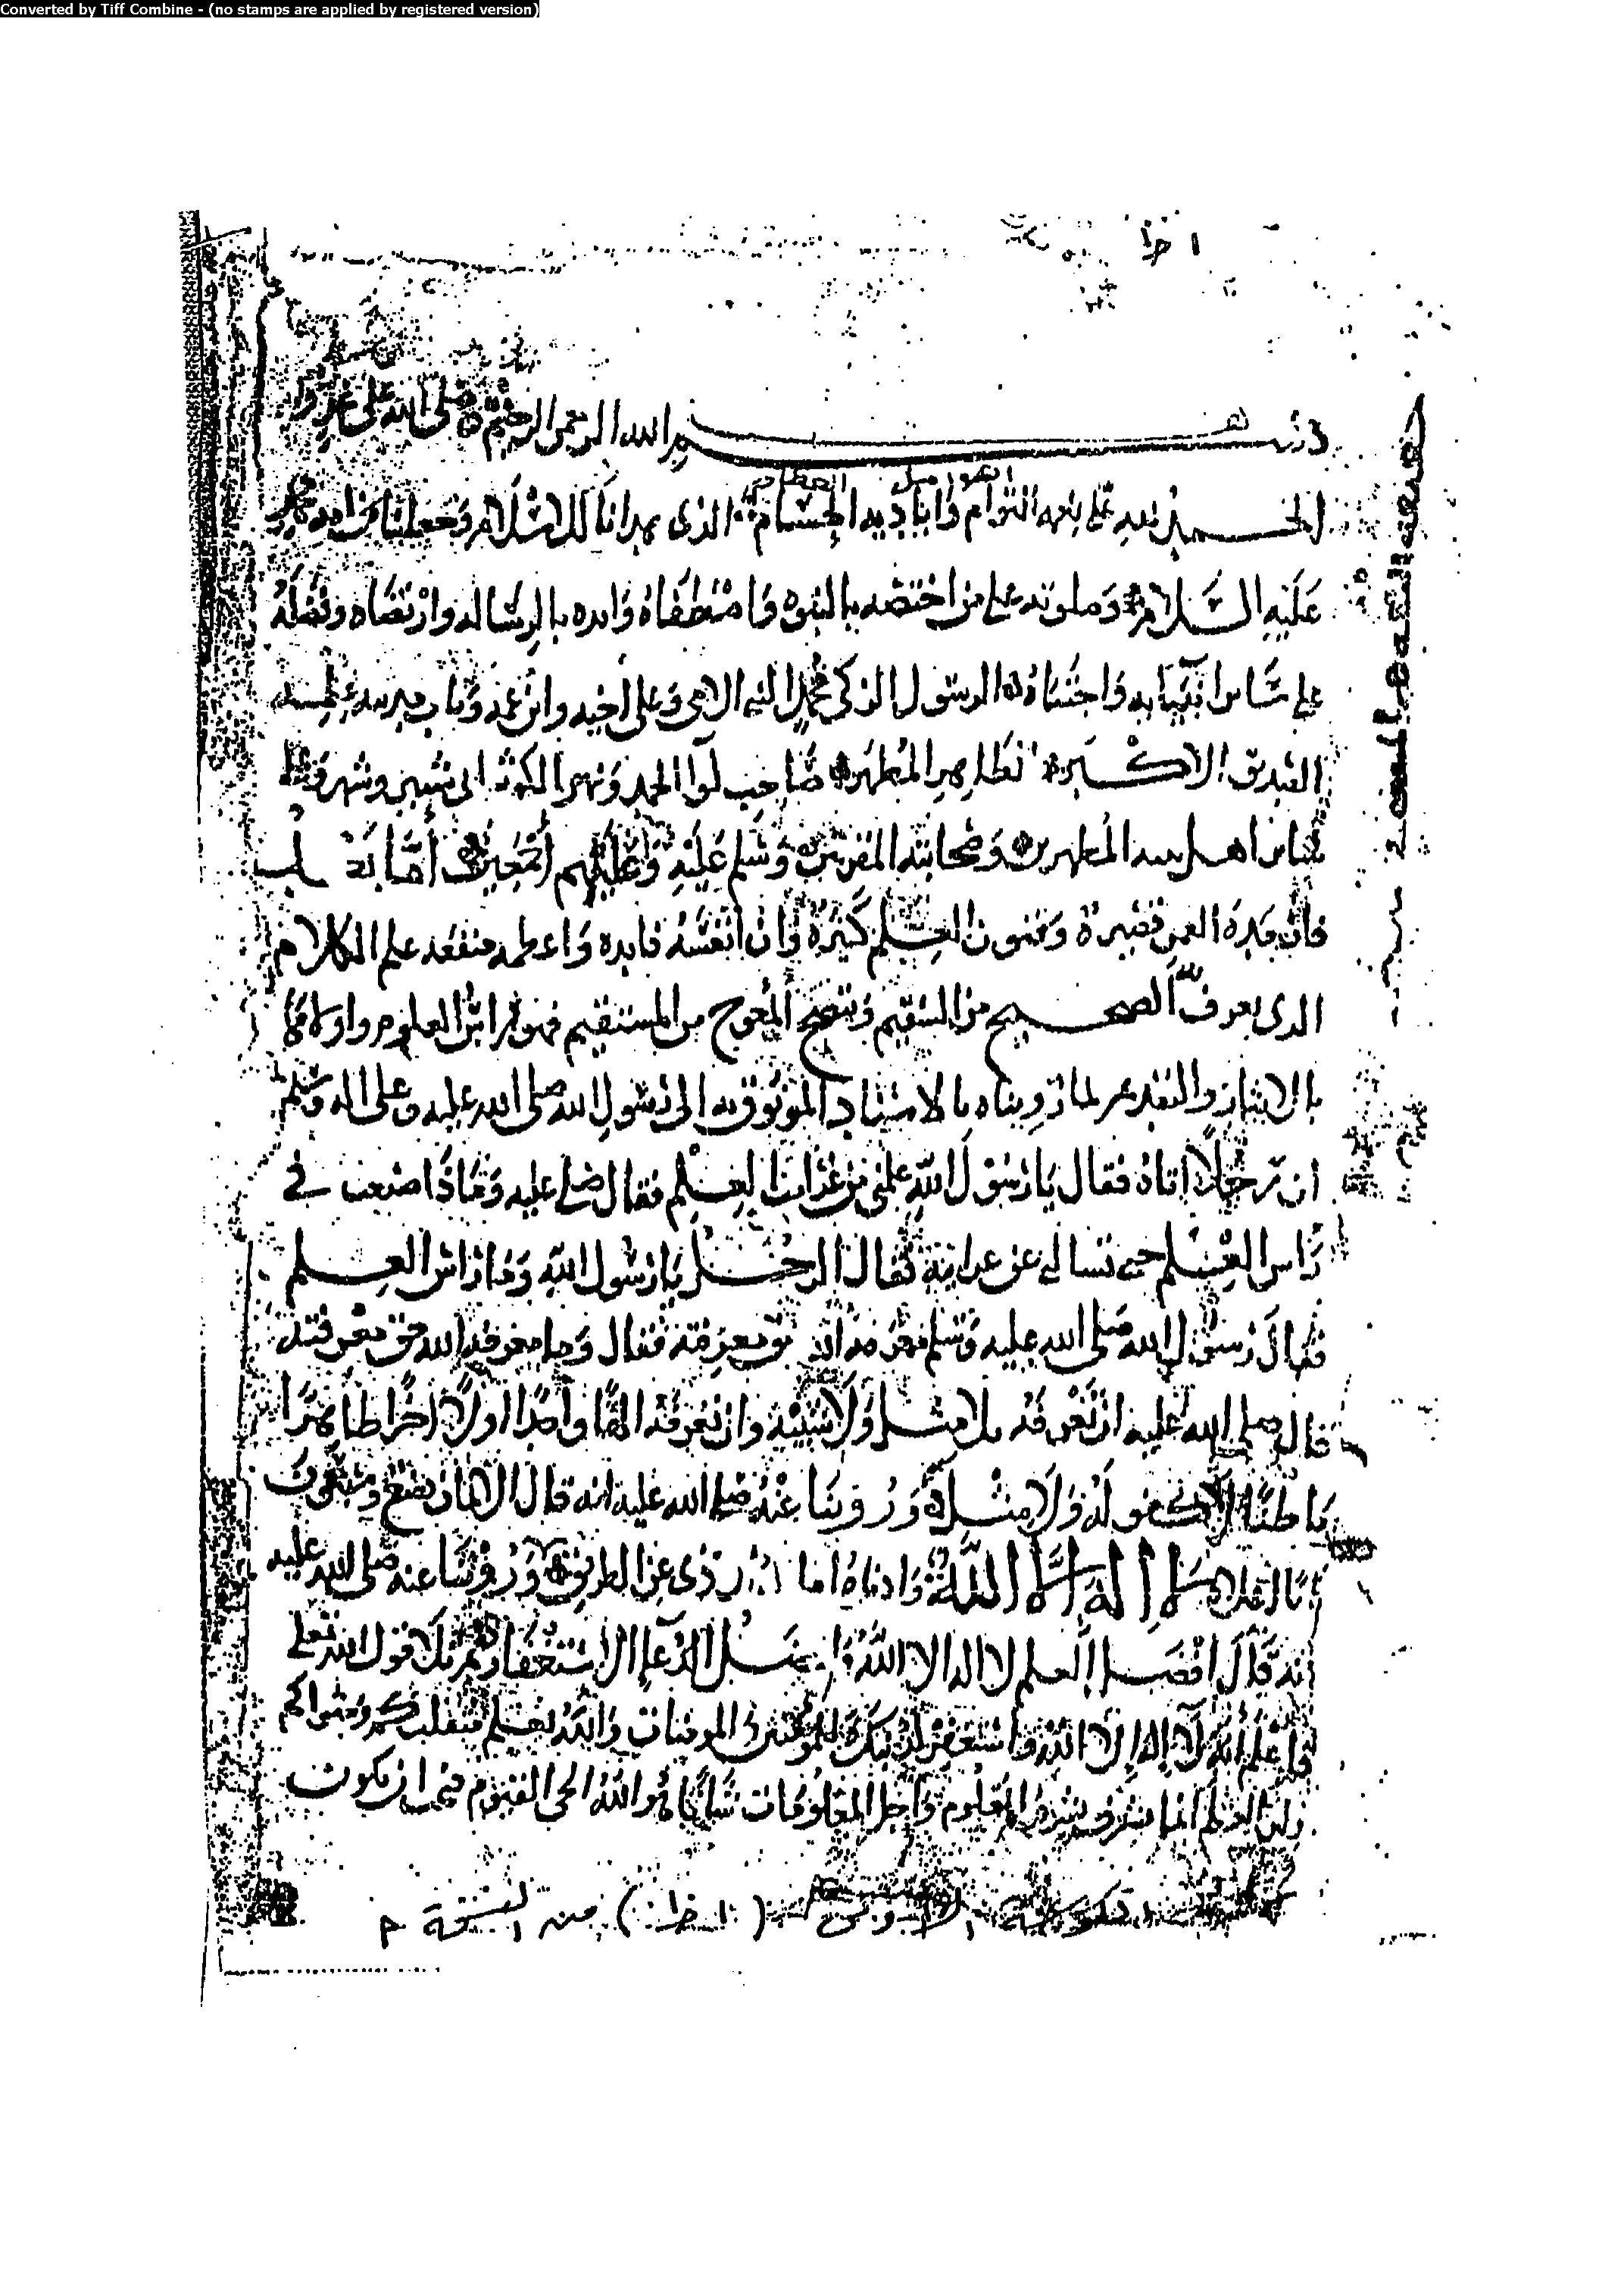 Converted by Tiff Combine - (no stamps are applied by registered version)
ا ظ
بسم الله الرحمن الرحيم صلى الله على محمد
الحمد لله على نعمه التوام واياديه الجسام الذي هدانا للاسلام وجعلنا من امة محمد
عليه السلام وصلوته على من اختصه بالنبوه واصطفاه وايده بالرساله وارتضاه وفضله
على سائر انبيايه واجتباه الرسول الزكي محمد النبي الامي وعلى اخيه وابن عمه وباب مدينه علمه
الصديق الاكبر الطاهر المطهر صاحب لوا الحمد ونهر الكوثر ابي شبير وشبر وعلى
اهل بيته المطهرين وصحابته المقربين وسلم عليه وعليهم اجمعين اما بعد
فان مدة العمر قصيرة وفنون العلم كثيرة وان انفسه فايده واعظمه منفعه علم الكلام
الذي يعرف به الصحيح من السقيم ويتضح المعوج من المستقيم فهو راس العلوم واولاها
بالايثار والتقديم لما رويناه بالاسناد الموثوق به الى رسول الله صلى الله عليه وعلى اله وسلم
ان رجلا اتاه فقال يا رسول الله علمني من غرائب العلم فقال صلى عليه وماذا صنعت في
راس العلم حتى تسالني عن غرايبه فقال الرجل يا رسول الله وما راس العلم
فقال رسول الله صلى الله عليه وسلم معرفة الله حق معرفته فقال وما معرفة الله حق معرفته
قال صلى الله عليه ان تعرفه بلا مثل ولا شبيه وان تعرفه الها واحدا اولا اخرا ظاهرا
باطنا لا كفو له ولا مثل له وروينا عنه صلى الله عليه انه قال الايمان بضع وسبعون
بابا اعلاها لا اله الا الله وادناها اماطة الاذى عن الطريق وروينا عنه صلى الله عليه
انه قال افضل العلم لا اله الا الله وافضل الدعا الاستغفار ثم تلا قول الله تعالى
فاعلم انه لا اله الا الله واستغفر لذنبك وللمؤمنين والمومنات والله يعلم متقلبكم ومثواكم
ولان العلم انما يشرف بشرف المعلوم واجل المعلومات شانا هو الله الحي القيوم فيجب ان يكون
اللوحة الاولى ( ا ظ ) من النسخة م